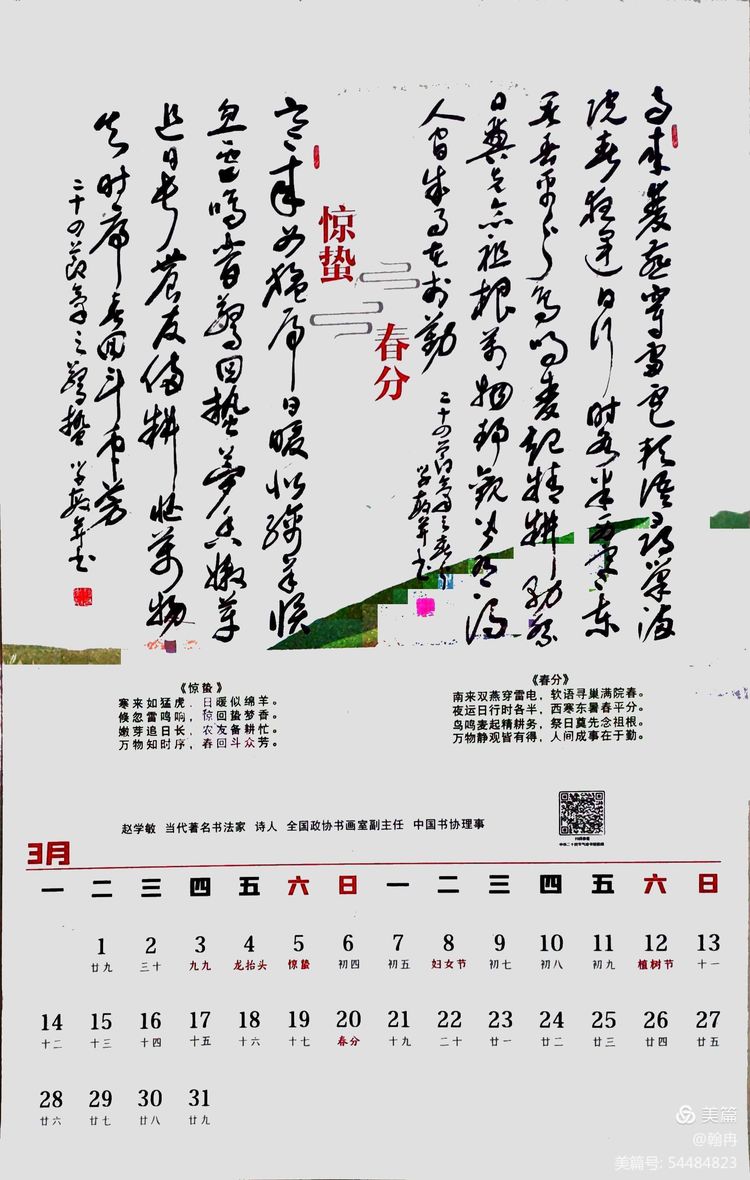 南来双燕穿雷电软语寻巢满
院春夜运日行时各半西寒东
暑春平分鸟鸣麦起精耕务祭
日奠先念祖根万物静观皆有得
人间成事在于勤
二十四节气之春分
学敏并书
寒来如猛虎日暖似绵羊候
忽雷鸣响惊回蛰梦香嫩芽
追日长农友备耕忙万物
知时序春回斗众芳
二十四节气之惊蛰 学敏并书
惊蛰
春分
《惊蛰》
寒来如猛虎,日暖似绵羊。
候忽雷鸣响,惊回蛰梦香。
嫩芽追日长,农友备耕忙。
万物知时序,春回斗众芳。
《春分》
南来双燕穿雷电,软语寻巢满院春。
夜运日行时各半,西寒东暑春平分。
鸟鸣麦起精耕务,祭日奠先念祖根。
万物静观皆有得,人间成事在于勤。
赵学敏 当代著名书法家 诗人 全国政协书画室副主任 中国书协理事
3月
一 二 三 四 五 六 日 一 二 三 四 五 六 日
1 2 3 4 5 6 7 8 9 10 11 12 13
廿九 三十 九九 龙抬头 惊蛰 初四 初五 妇女节 初七 初八 初九 植树节 十一
14 15 16 17 18 19 20 21 22 23 24 25 26 27
十二 十三 十四 十五 十六 十七 春分 十九 二十 廿一 廿二 廿三 廿四 廿五
28 29 30 31
廿六 廿七 廿八 廿九
美篇
@翰冉
美篇号: 54484823